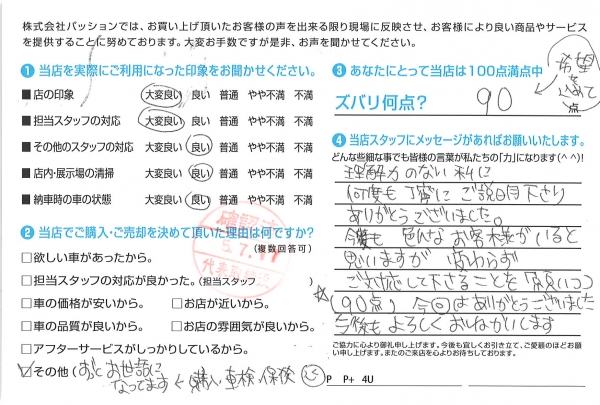 株式会社パッションでは、お買い上げ頂いたお客様の声を出来る限り現場に反映させ、お客様により良い商品やサービス
を提供することに努めております。大変お手数ですが是非、お声を聞かせてください。
❶ 当店を実際にご利用になった印象をお聞かせください。
■ 店の印象 大変良い 良い 普通 やや不満 不満
■ 担当スタッフの対応 大変良い 良い 普通 やや不満 不満
■ その他のスタッフの対応 大変良い 良い 普通 やや不満 不満
■ 店内・展示場の清掃 大変良い 良い 普通 やや不満 不満
■ 納車時の車の状態 大変良い 良い 普通 やや不満 不満
❷ 当店でご購入・ご売却を決めて頂いた理由は何ですか?
(複数回答可)
□欲しい車があったから。
□担当スタッフの対応が良かった。(担当スタッフ )
□車の価格が安いから。 □お店が近いから。
□車の品質が良いから。 □お店の雰囲気が良いから。
□アフターサービスがしっかりしているから。
□その他(ずっとお世話に
なってます ← 購入・車検・保険
確認済
5.7.17
代表取締役
❸ あなたにとって当店は100点満点中
ズバリ何点? 90 点
希望
を
込めて
❹ 当店スタッフにメッセージがあればお願いいたします。
どんな些細な事でも皆様の言葉が私たちの「力」になります(^ ^)!
理解力のない私に
何度も丁寧にご説明下さり
ありがとうございました。
今後も 色んなお客様がいると
思いますが 変わらず
ご対応して下さることを願いつつ
☆(90点) 今回はありがとうございました
今後もよろしくおねがいします
ご協力に心より御礼申し上げます。今後も宜しくお引き立て、ご愛顧のほどお願
い申し上げます。またのご来店を心よりお待ちしております。
P P+ 4U